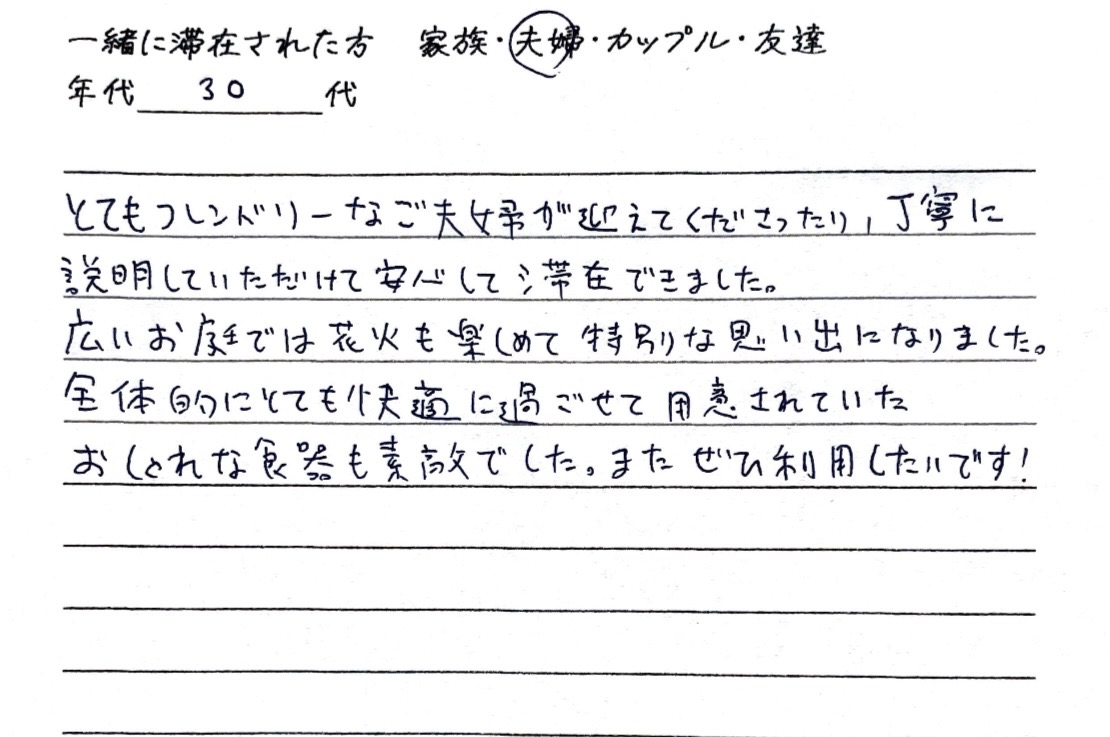 一緒に滞在された方　家族・夫婦・カップル・友達
年代 30 代
とてもフレンドリーなご夫婦が迎えてくださったり,丁寧に
説明していただけて安心して滞在できました。
広いお庭では花火も楽しめて特別な思い出になりました。
全体的にとても快適に過ごせて用意されていた
おしゃれな食器も素敵でした。またぜひ利用したいです!